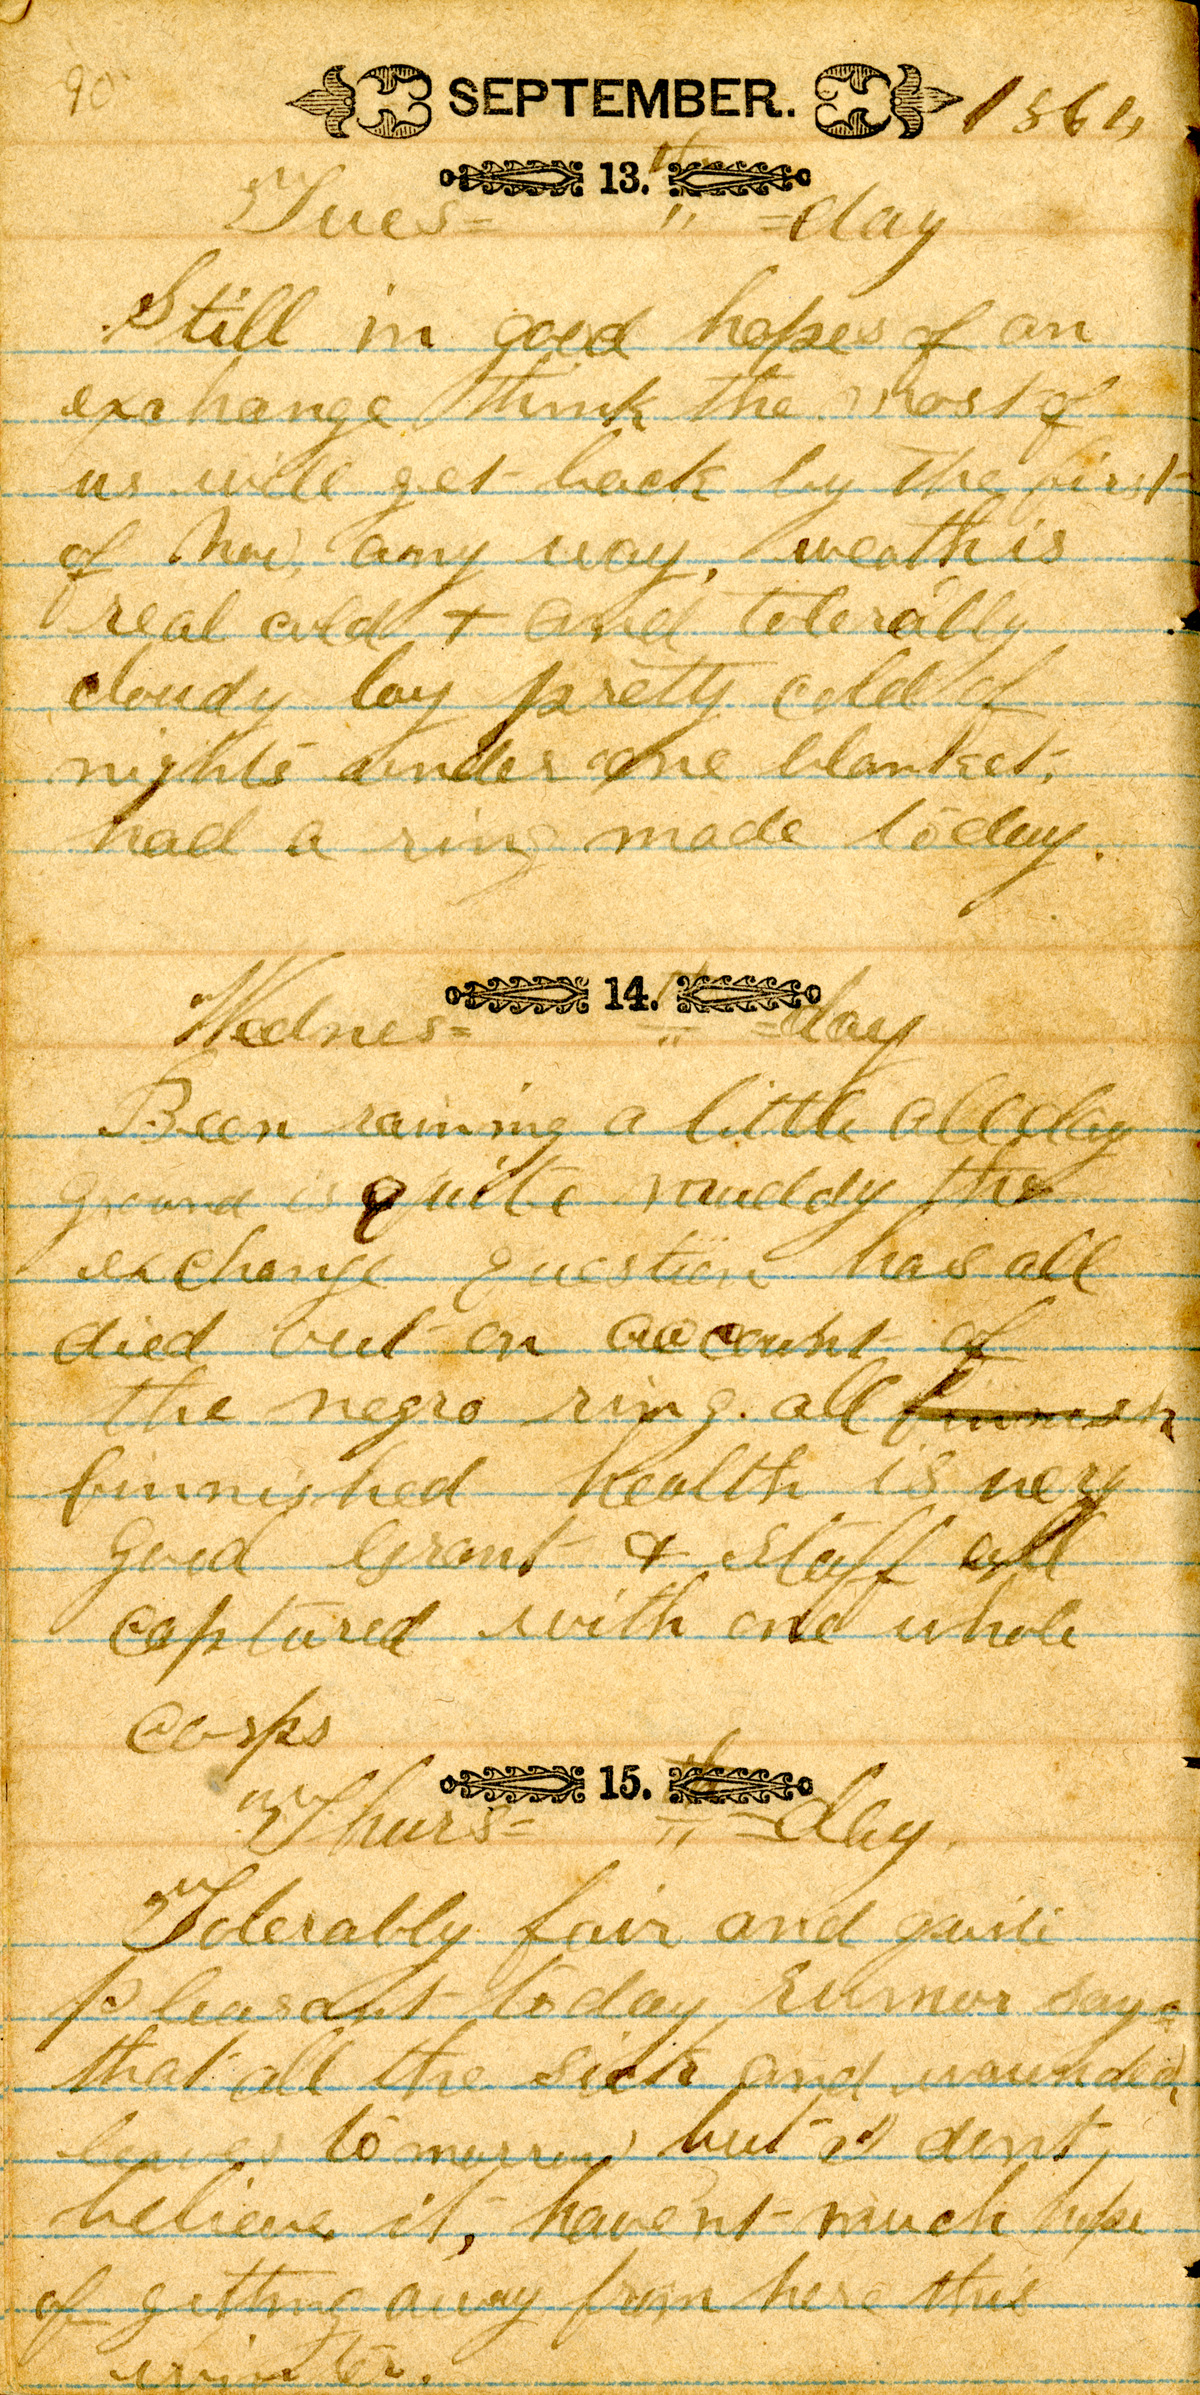 90
SEPTEMBER. 1864
13.th
Tues= " =day
Still in good hopes of an
exchange think the most of
us will get back by the first
of Nov. any way, weath is
real cold + and tolerably
cloudy lay pretty cold of
nights under one blanket,
had a ring made today.
14.th
Wednes= " =day
Been raining a little all day
ground is quite muddy the
exchange question has all
died out on account of
the negro ring. all finnish
finnished health is very
good Grant & staff all
captured with one whole
corps
15.th
Thurs= " =day.
Tolerably fair and quite
pleasant today Rumor say=
that all the sick and wounded
leaves tomorrow but I dont,
believe it, havent much hope
of getting away from here this
winter.